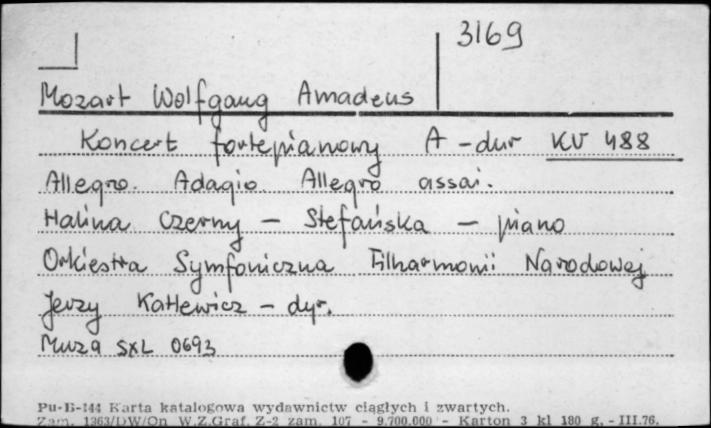 3169
Mozart Wolfgang Amadeus
Koncert fortepianowy A-dur KV 488
Allegro. Adagio Allegro assai.
Halina Czerny - Stefańska - piano
Orkiestra Symfoniczna Filharmonii Narodowej
Jerzy Katlewicz - dyr.
Muza SXL 0693
Pu-B-144 Karta katalogowa wydawnictw ciągłych i zwartych.
Zam. 1363/DW/On W.Z.Graf. Z-2 zam. 107 - 9.700.000 - Karton 3 kl 180 g. - III.76.